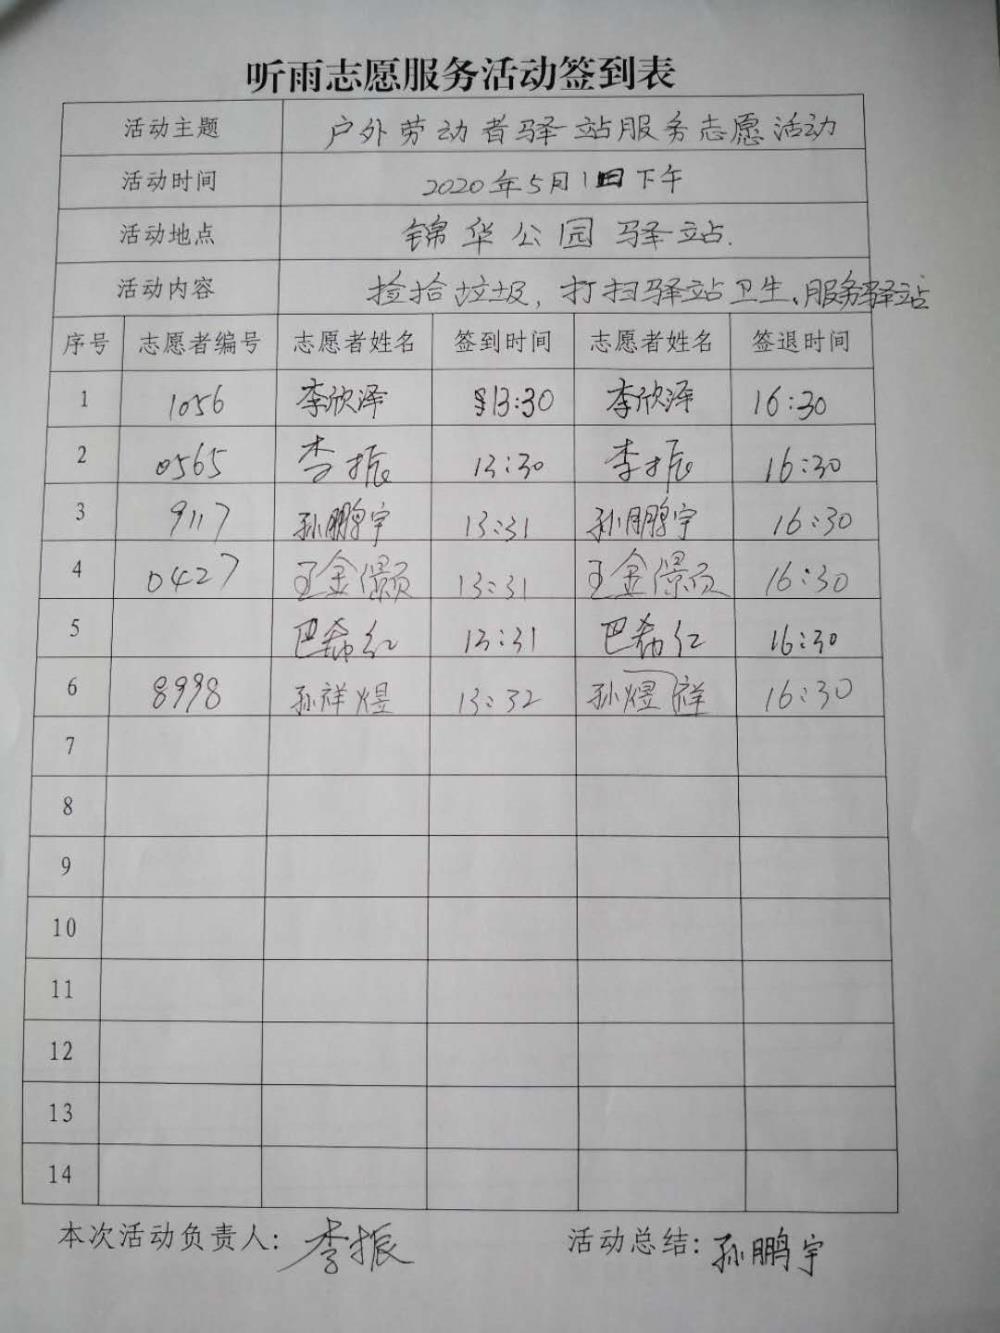 听雨志愿服务活动签到表
活动主题 户外劳动者驿站服务志愿活动
活动时间 2020年5月1日下午
活动地点 锦华公园驿站.
活动内容 捡拾垃圾,打扫驿站卫生、服务驿站
序号 志愿者编号 志愿者姓名 签到时间 志愿者姓名 签退时间
1 1056 李欣泽 13:30 李欣泽 16:30
2 0565 李振 13:30 李振 16:30
3 9117 孙鹏宇 13:31 孙鹏宇 16:30
4 0427 王金 13:31 王金 16:30
5 巴红 13:31 巴红 16:30
6 8998 孙祥煜 13:32 孙煜祥 16:30
7
8
9
10
11
12
13
14
本次活动负责人: 李振 活动总结: 孙鹏宇